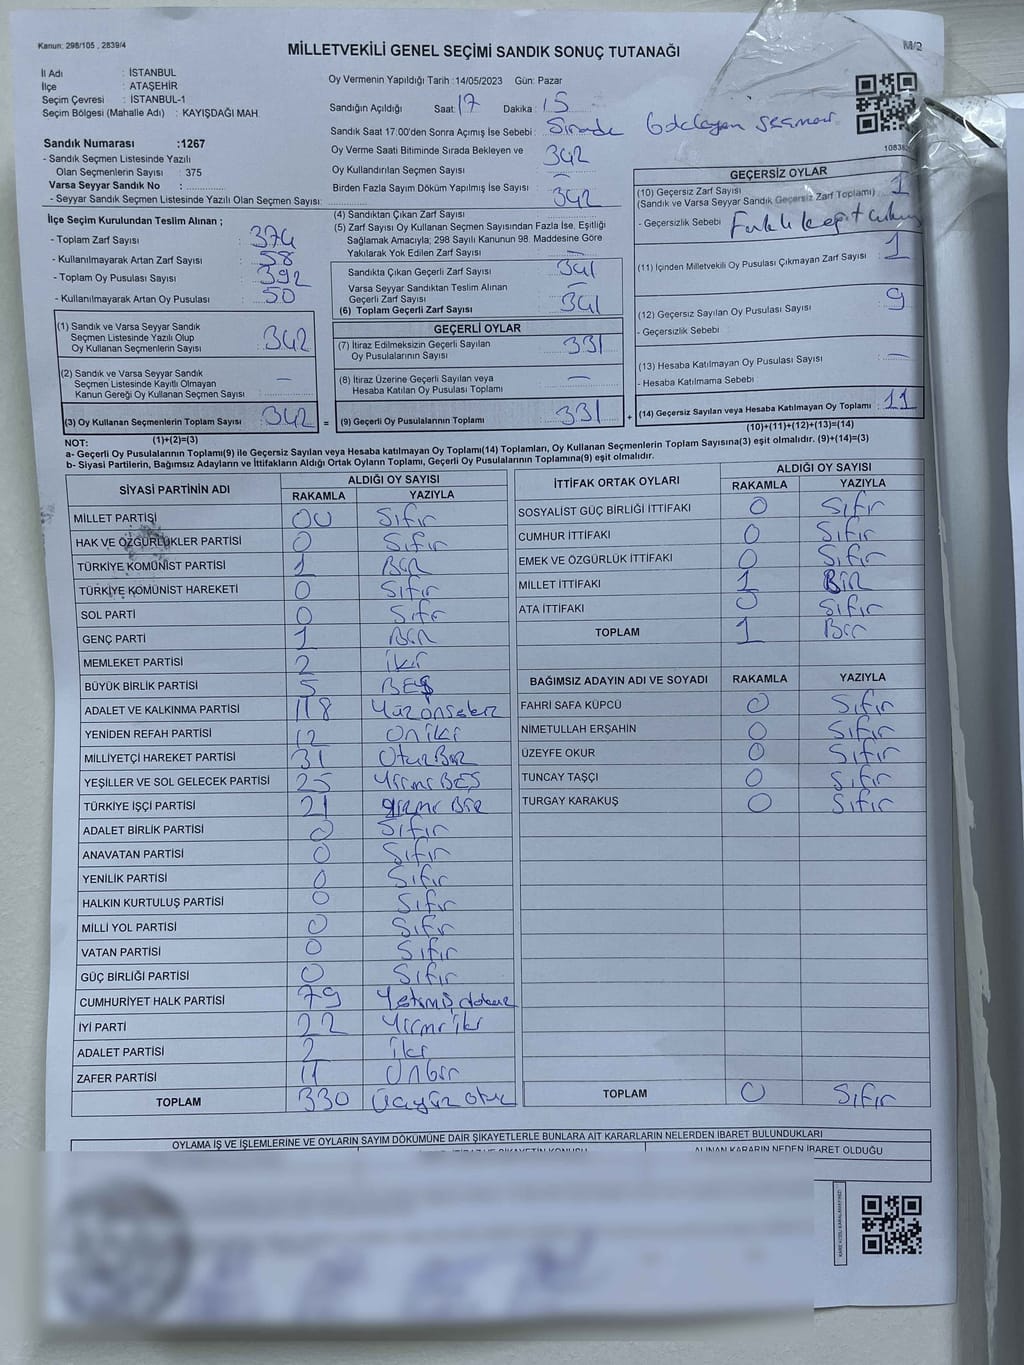 Kanun: 298/105 , 2839/4
MİLLETVEKİLİ GENEL SEÇİMİ SANDIK SONUÇ TUTANAĞI
M/2
İl Adı : İSTANBUL
İlçe : ATAŞEHİR
Seçim Çevresi : İSTANBUL-1
Seçim Bölgesi (Mahalle Adı) : KAYIŞDAĞI MAH.
Oy Vermenin Yapıldığı Tarih :14/05/2023 Gün: Pazar
Sandığın Açıldığı Saat 17 Dakika : 15
Sandık Saat 17:00'den Sonra Açımış İse Sebebi : Sırada seçmen
Sandık Numarası :1267
- Sandık Seçmen Listesinde Yazılı
Olan Seçmenlerin Sayısı : 375
Varsa Seyyar Sandık No :
- Seyyar Sandık Seçmen Listesinde Yazılı Olan Seçmen Sayısı:
Oy Verme Saati Bitiminde Sırada Bekleyen ve
Oy Kullandırılan Seçmen Sayısı : 342
Birden Fazla Sayım Döküm Yapılmış İse Sayısı : —
İlçe Seçim Kurulundan Teslim Alınan ;
- Toplam Zarf Sayısı : 374
- Kullanılmayarak Artan Zarf Sayısı : 58
- Toplam Oy Pusulası Sayısı : 392
- Kullanılmayarak Artan Oy Pusulası : 50
(1) Sandık ve Varsa Seyyar Sandık
Seçmen Listesinde Yazılı Olup
Oy Kullanan Seçmenlerin Sayısı : 342
(2) Sandık ve Varsa Seyyar Sandık
Seçmen Listesinde Kayıtlı Olmayan
Kanun Gereği Oy Kullanan Seçmen Sayısı : —
(3) Oy Kullanan Seçmenlerin Toplam Sayısı : 342
(1)+(2)=(3)
(4) Sandıktan Çıkan Zarf Sayısı : 342
(5) Zarf Sayısı Oy Kullanan Seçmen Sayısından Fazla İse, Eşitliği
Sağlamak Amacıyla; 298 Sayılı Kanunun 98. Maddesine Göre
Yakılarak Yok Edilen Zarf Sayısı : —
Sandıkta Çıkan Geçerli Zarf Sayısı : 341
Varsa Seyyar Sandıktan Teslim Alınan
Geçerli Zarf Sayısı : —
(6) Toplam Geçerli Zarf Sayısı : 341
GEÇERLİ OYLAR
(7) İtiraz Edilmeksizin Geçerli Sayılan
Oy Pusulalarının Sayısı : 331
(8) İtiraz Üzerine Geçerli Sayılan veya
Hesaba Katılan Oy Pusulası Toplamı : —
= (9) Geçerli Oy Pusulalarının Toplamı : 331 +
10838
GEÇERSİZ OYLAR
(10) Geçersiz Zarf Sayısı : 1
(Sandık ve Varsa Seyyar Sandık Geçersiz Zarf Toplamı)
- Geçersizlik Sebebi : Farklı
(11) İçinden Milletvekili Oy Pusulası Çıkmayan Zarf Sayısı : 1
(12) Geçersiz Sayılan Oy Pusulası Sayısı : 9
- Geçersizlik Sebebi :
(13) Hesaba Katılmayan Oy Pusulası Sayısı : —
- Hesaba Katılmama Sebebi :
(14) Geçersiz Sayılan veya Hesaba Katılmayan Oy Toplamı : 11
(10)+(11)+(12)+(13)=(14)
NOT:
a- Geçerli Oy Pusulalarının Toplamı(9) ile Geçersiz Sayılan veya Hesaba Katılmayan Oy Toplamı(14) Toplamları, Oy Kullanan Seçmenlerin Toplam Sayısına(3) eşit olmalıdır. (9)+(14)=(3)
b- Siyasi Partilerin, Bağımsız Adayların ve İttifakların Aldığı Ortak Oyların Toplamı, Geçerli Oy Pusulalarının Toplamına(9) eşit olmalıdır.
SİYASİ PARTİNİN ADI ALDIĞI OY SAYISI
RAKAMLA YAZIYLA
MİLLET PARTİSİ 00 Sıfır
HAK VE ÖZGÜRLÜKLER PARTİSİ 0 Sıfır
TÜRKİYE KOMÜNİST PARTİSİ 1 Bir
TÜRKİYE KOMÜNİST HAREKETİ 0 Sıfır
SOL PARTİ 0 Sıfır
GENÇ PARTİ 1 Bir
MEMLEKET PARTİSİ 2 iki
BÜYÜK BİRLİK PARTİSİ 5 BEŞ
ADALET VE KALKINMA PARTİSİ 118 Yüzonsekiz
YENİDEN REFAH PARTİSİ 12 Oniki
MİLLİYETÇİ HAREKET PARTİSİ 31 OtuzBir
YEŞİLLER VE SOL GELECEK PARTİSİ 25 YirmiBEŞ
TÜRKİYE İŞÇİ PARTİSİ 21 yirmi Bir
ADALET BİRLİK PARTİSİ 0 Sıfır
ANAVATAN PARTİSİ 0 Sıfır
YENİLİK PARTİSİ 0 Sıfır
HALKIN KURTULUŞ PARTİSİ 0 Sıfır
MİLLİ YOL PARTİSİ 0 Sıfır
VATAN PARTİSİ 0 Sıfır
GÜÇ BİRLİĞİ PARTİSİ 0 Sıfır
CUMHURİYET HALK PARTİSİ 79 Yetmiş dokuz
İYİ PARTİ 22 Yirmi iki
ADALET PARTİSİ 2 iki
ZAFER PARTİSİ 11 Onbir
TOPLAM 330 Üçyüz otuz
İTTİFAK ORTAK OYLARI ALDIĞI OY SAYISI
RAKAMLA YAZIYLA
SOSYALİST GÜÇ BİRLİĞİ İTTİFAKI 0 Sıfır
CUMHUR İTTİFAKI 0 Sıfır
EMEK VE ÖZGÜRLÜK İTTİFAKI 0 Sıfır
MİLLET İTTİFAKI 1 Bir
ATA İTTİFAKI 0 Sıfır
TOPLAM 1 Bir
BAĞIMSIZ ADAYIN ADI VE SOYADI RAKAMLA YAZIYLA
FAHRİ SAFA KÜPCÜ 0 Sıfır
NİMETULLAH ERŞAHİN 0 Sıfır
ÜZEYFE OKUR 0 Sıfır
TUNCAY TAŞÇI 0 Sıfır
TURGAY KARAKUŞ 0 Sıfır
TOPLAM 0 Sıfır
OYLAMA İŞ VE İŞLEMLERİNE VE OYLARIN SAYIM DÖKÜMÜNE DAİR ŞİKAYETLERLE BUNLARA AİT KARARLARIN NELERDEN İBARET BULUNDUKLARI
ALINAN KARARIN NEDEN İBARET OLDUĞU